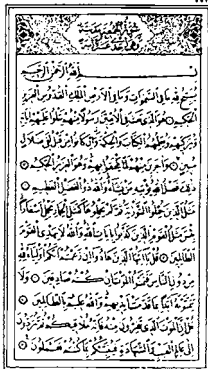 سورة الجمعة مدنية
بسم الله الرحمن الرحيم
يسبح لله ما في السموات وما في الارض الملك القدوس العزيز
الحكيم هو الذي بعث في الاميين رسولا منهم يتلوا عليهم اياته
ويزكيهم ويعلمهم الكتاب والحكمة وان كانوا من قبل لفي ضلال
مبين واخرين منهم لما يلحقوا بهم وهو العزيز الحكيم
ذلك فضل الله يؤتيه من يشاء والله ذو الفضل العظيم
مثل الذين حملوا التورية ثم لم يحملوها كمثل الحمار يحمل اسفارا
بئس مثل القوم الذين كذبوا بايات الله والله لا يهدي القوم
الظالمين قل يا ايها الذين هادوا ان زعمتم انكم اولياء لله
من دون الناس فتمنوا الموت ان كنتم صادقين ولا
يتمنونه ابدا بما قدمت ايديهم والله عليم بالظالمين
قل ان الموت الذي تفرون منه فانه ملاقيكم ثم تردون
الى عالم الغيب والشهادة فينبئكم بما كنتم تعملون